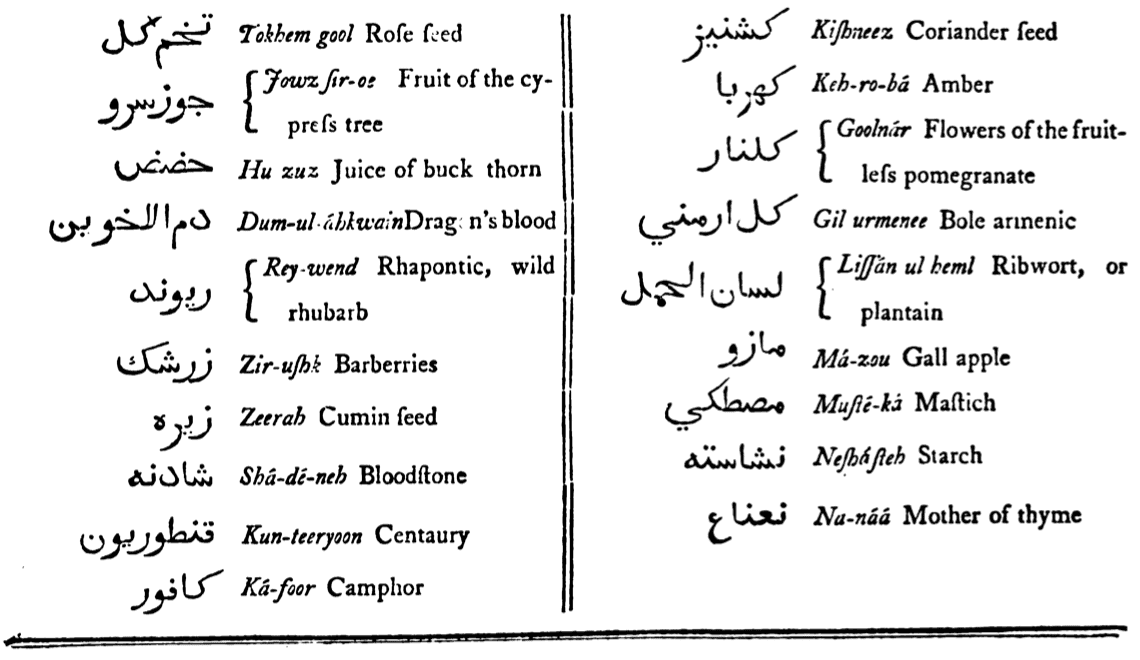 تخم كل Tokhem gool Roſe ſeed
جوزسرو Jowz ſir-oe Fruit of the cy-
preſs tree
حضض Hu zuz Juice of buck thorn
دم الخوين Dum-ul-áhkwain Dragon's blood
ريوند Rey-wend Rhapontic, wild
rhubarb
زرشك Zir-uſhk Barberries
زيره Zeerah Cumin ſeed
شادنه Shâ-dé-neh Bloodſtone
قنطوريون Kun-teeryoon Centaury
كافور Kâ-foor Camphor
كشنيز Kiſhneez Coriander ſeed
كهربا Keh-ro-bá Amber
كلنار Goolnár Flowers of the fruit-
leſs pomegranate
كل ارمني Gil urmenee Bole armenic
لسان الحمل Liſſán ul heml Ribwort, or
plantain
مازو Má-zou Gall apple
مصطكي Muſté-ká Maſtich
نشاسته Neſháſteh Starch
نعناع Na-náá Mother of thyme